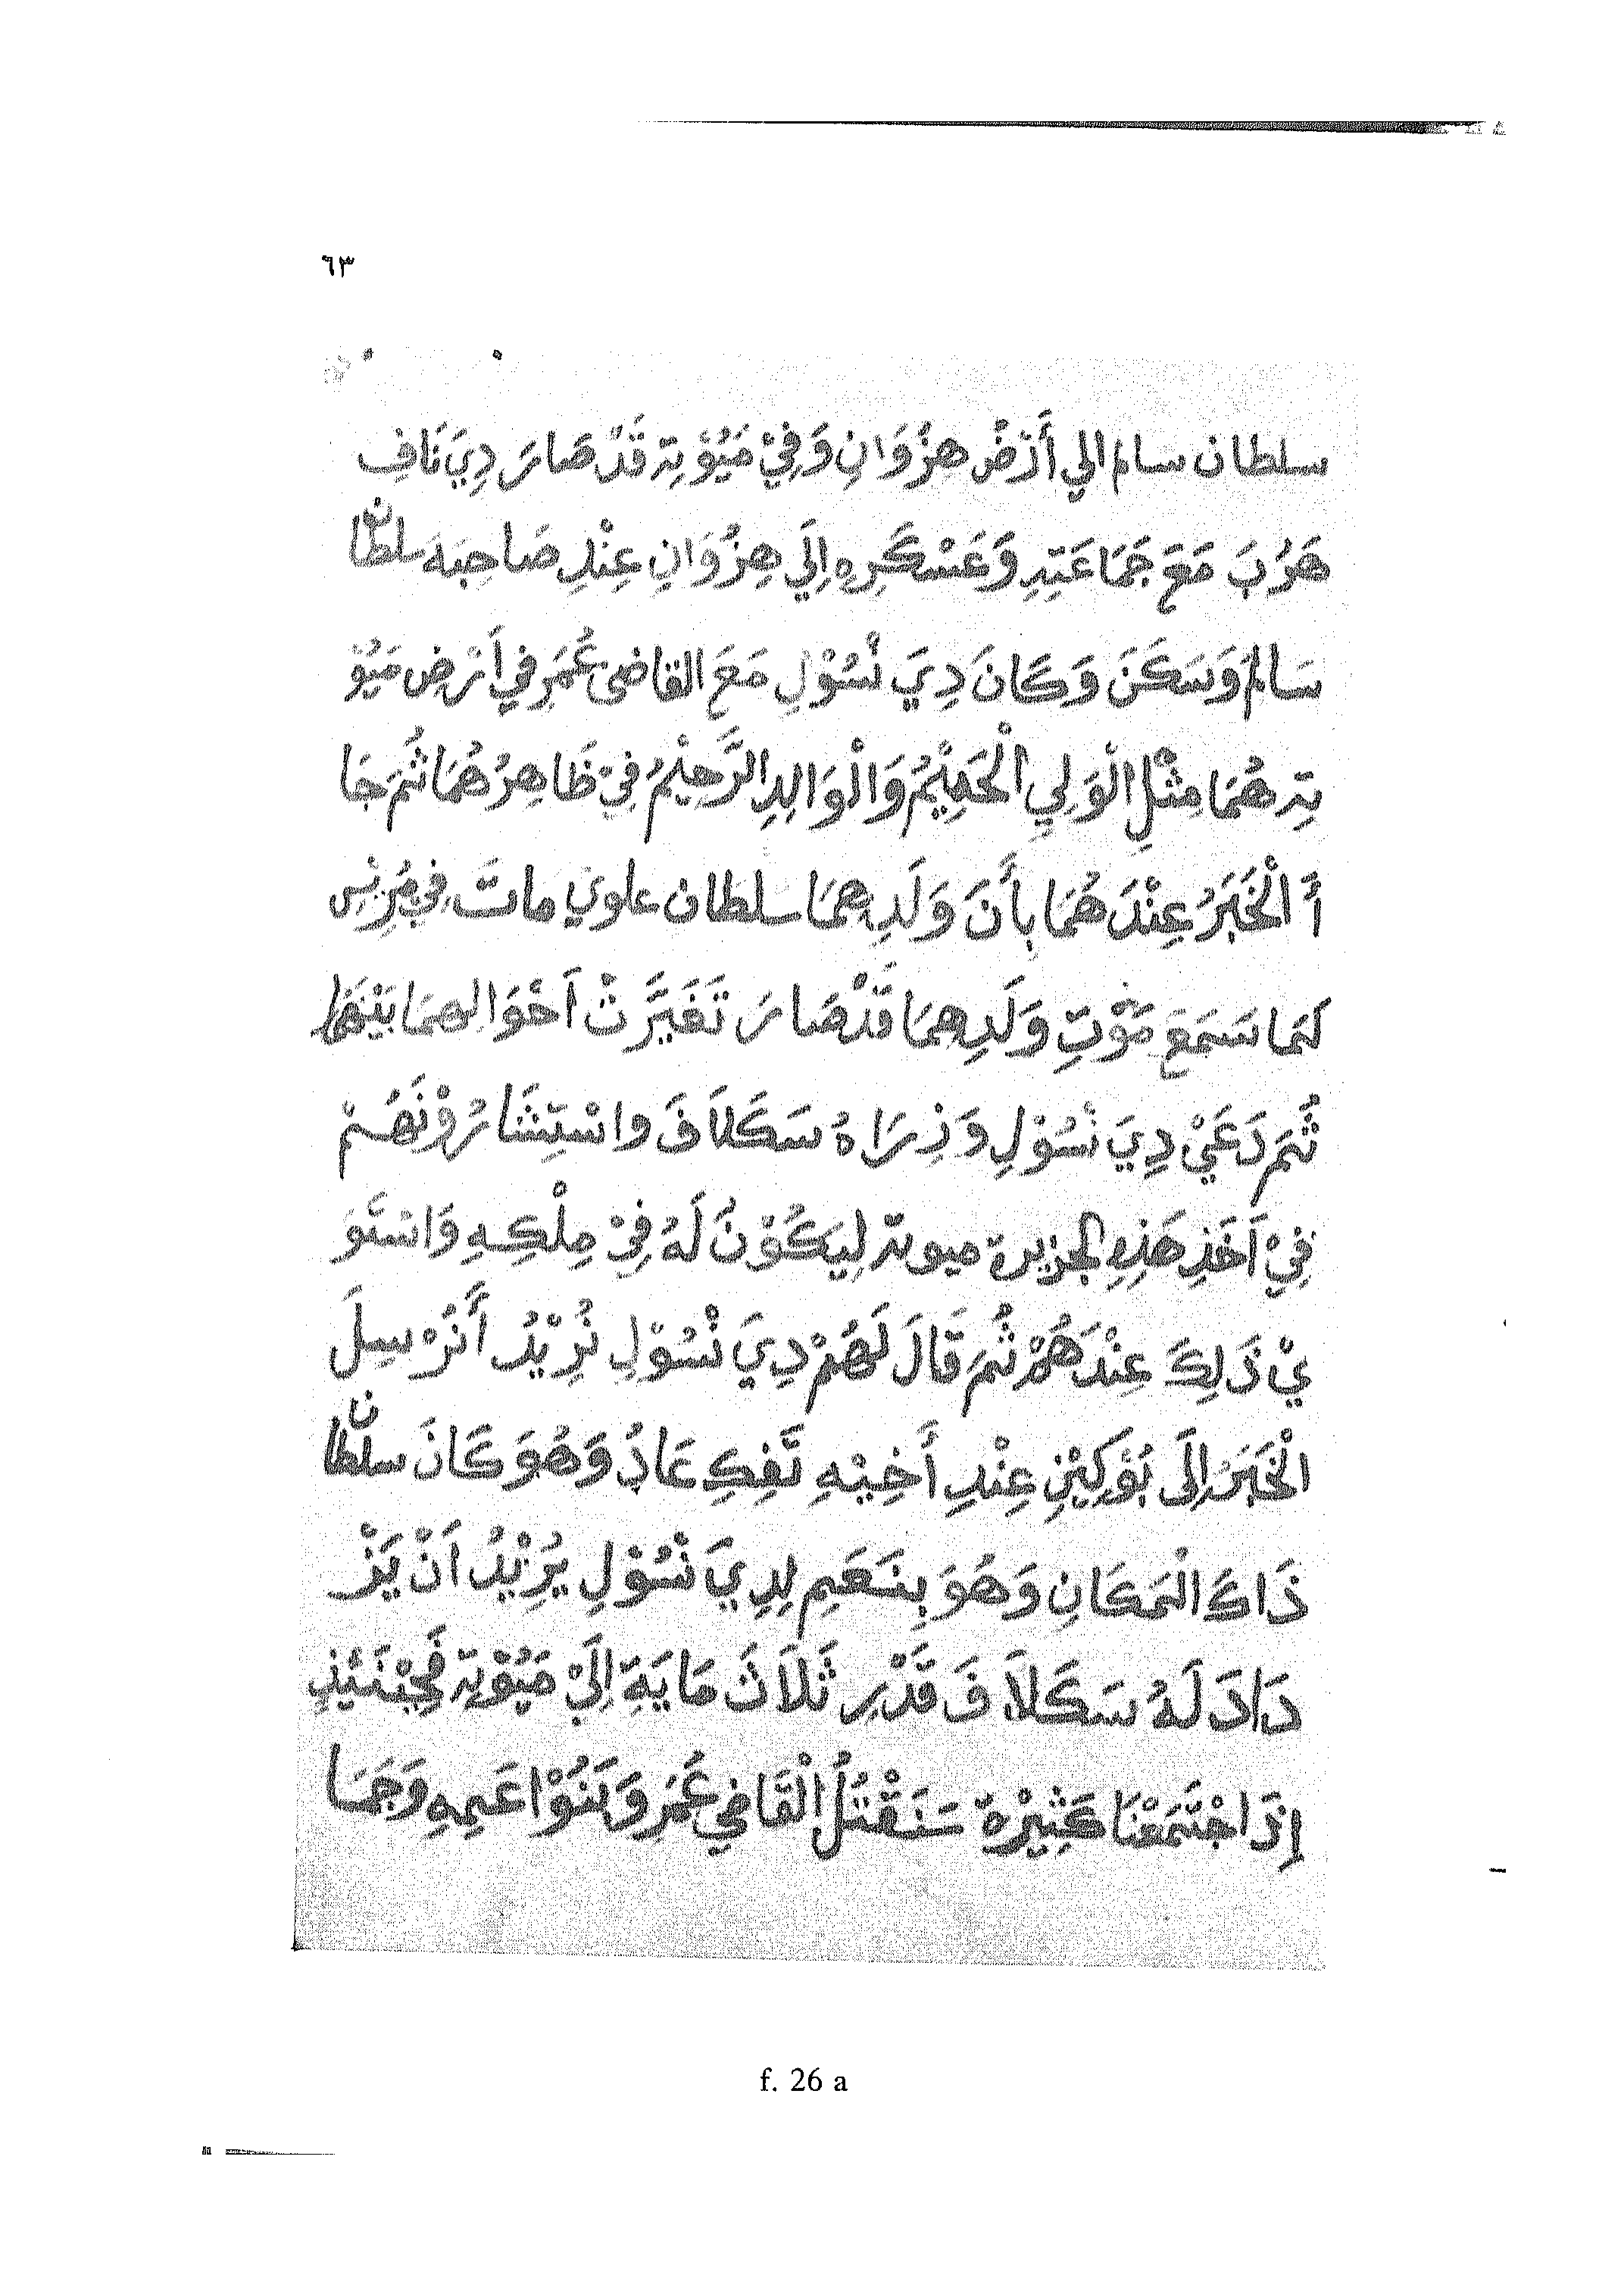 ٦٣
سلطان سالم الي أَرْضْ هِزُوَانِ وَفِيْ مَيُوْتِة قَدْ صَارَ دِيَ نَافِ
هَرُبَ مَعَ جَمَاعَتِهِ وَعَسْكَرِهِ اِلَي هِزُوَانِ عِنْدِ صَاحِبَهَ سلطان
سَالِمْ وَسَكَنَ وَكَانَ دِيَ نْسُوْلِ مَعَ القاضى عُمَرِ في اَرْضِ مَيُوْ
تِة هُمَا مِثْلِ الْوَلِي الْحَمِيْمُ وَالْوَالِدِ الرَّحِيْمُ فِيْ ظَاهِرُهُمَا ثُمَ جَا
أَ الْخَبَرُ عِنْدَهُمَا بِأَنَ وَلَدِهِمَا سلطان علوي ماتَ فِي مُرِنْسِ
كَمَا سَمَعَ مَوْتِ وَلَدِهِمَا قَدْ صَارَ تَغَيَّرَتْ اَحْوَالِهمَا بَيْنَهُمَا
ثُمَ دَعَيْ دِيَ نْسُوْلِ وَذِرَاهُ سَكَلَافَ وَاسْتِشَارُوْنَهُمْ
فِيْ اَخَذِ هَذِهِ الجزيرة ميوتة لِيَكُوْنُ لَهُ فِيْ مِلْكِهِ وَاسْتَوَ
يْ ذَلِكَ عِنْدَهُمْ ثُمَ قَالَ لَهُمْ دِيَ نْسُوْلِ نُرِيْدُ أَنُرْسِلَ
الْخَبَرُ اِلَى بُوْكِيْنِ عِنْدِ أَخِيْهِ تَفِكِ عَادُ وَهُوَ كَانَ سلطان
ذَاكَ الْمَكَانِ وَهُوَ بِنَعَمِ لِدِيَ نْسُوْلِ يُرِيْدُ اَنْ يَزْ
دَادَ لَهُ سَكَلَافَ قَدْرِ ثَلَاثَ مَايَةِ اِلَيْ مَيُوْتِة فَحِيْنَئِذِ
اِذَا جْتَمَعْنَا كَثِيْرَة سَنَقْتُلُ الْقَاضِي عُمَرِ وَبَنُوْا عَمِهِ وَجَمَا
f. 26 a